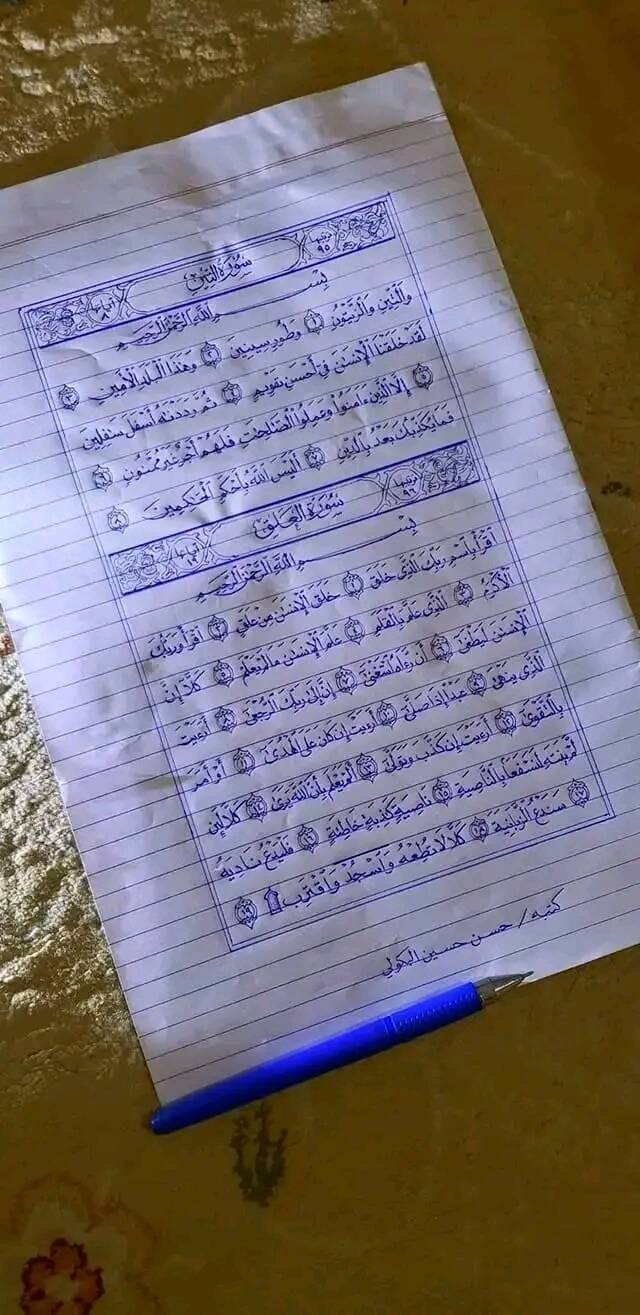 ترتيبها ٩٥ سورة التين آياتها ٨
بسم الله الرحمن الرحيم
والتين والزيتون ١ وطور سينين ٢ وهذا البلد الأمين ٣
لقد خلقنا الإنسن في أحسن تقويم ٤ ثم رددنه أسفل سفلين
٥ إلا الذين ءامنوا وعملوا الصالحت فلهم أجر غير ممنون ٦
فما يكذبك بعد بالدين ٧ أليس الله بأحكم الحكمين ٨
ترتيبها ٩٦ سورة العلق آياتها ١٩
بسم الله الرحمن الرحيم
اقرأ باسم ربك الذي خلق ١ خلق الإنسن من علق ٢ اقرأ وربك
الأكرم ٣ الذي علم بالقلم ٤ علم الإنسن ما لم يعلم ٥ كلا إن
الإنسن ليطغى ٦ أن رءاه استغنى ٧ إن إلى ربك الرجعى ٨ أرءيت
الذي ينهى ٩ عبدا إذا صلى ١٠ أرءيت إن كان على الهدى ١١ أو أمر
بالتقوى ١٢ أرءيت إن كذب وتولى ١٣ ألم يعلم بأن الله يرى ١٤ كلا لئن
لم ينته لنسفعا بالناصية ١٥ ناصية كذبة خاطئة ١٦ فليدع ناديه
١٧ سندع الزبانية ١٨ كلا لا تطعه واسجد واقترب ۩ ١٩
كتبه / حسن حسين البكولي